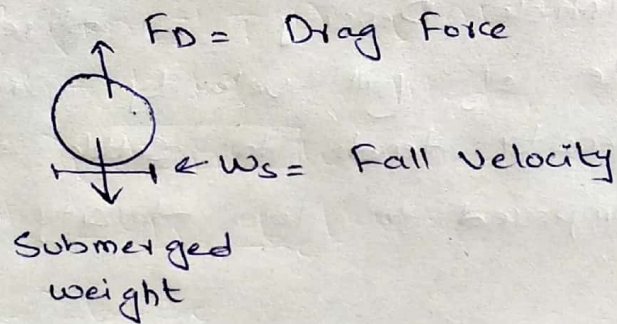 FD = Drag Force
← Ws = Fall velocity
Submerged
weight